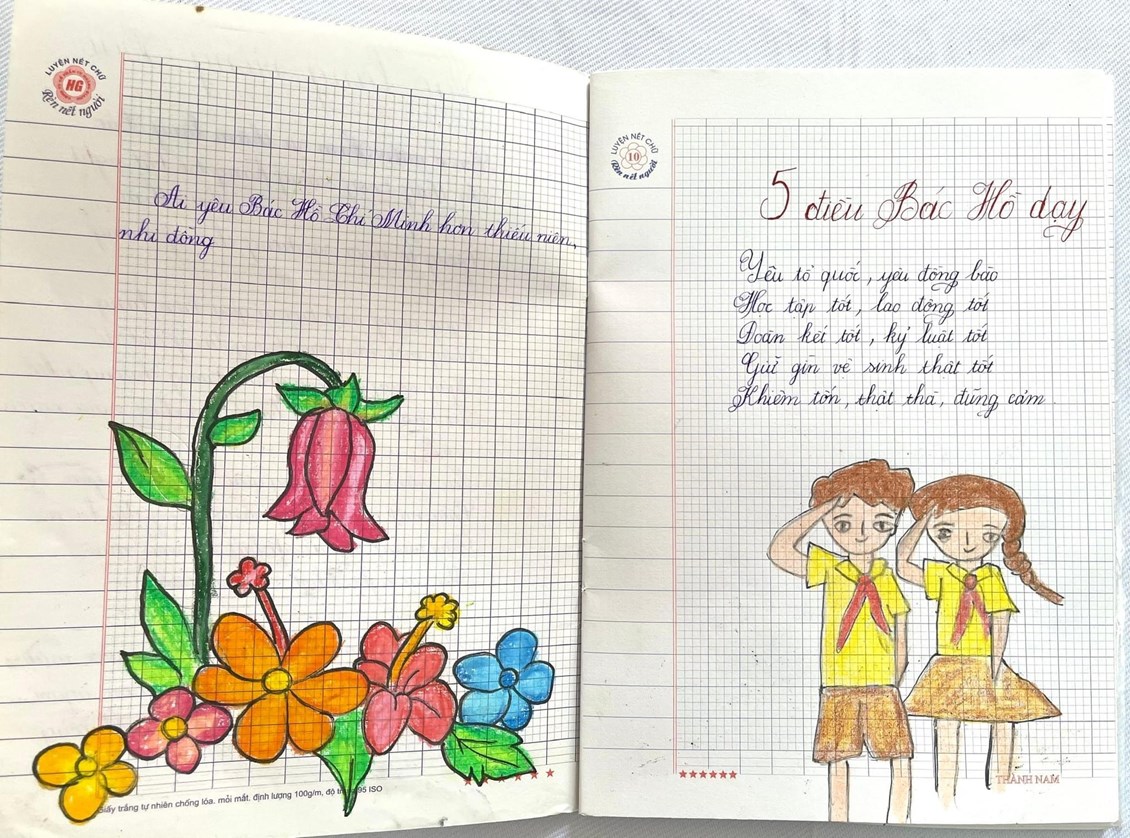 LUYỆN NẾT CHỮ
HG
Rèn nết người
Ai yêu Bác Hồ Chí Minh hơn thiếu niên,
nhi đồng
Giấy trắng tự nhiên chống lóa. mỏi mắt. định lượng 100g/m, độ 95 ISO
LUYỆN NẾT CHỮ
10
Rèn nết người
5 điều Bác Hồ dạy
Yêu tổ quốc, yêu đồng bào
Học tập tốt, lao động tốt
Đoàn kết tốt, kỷ luật tốt
Giữ gìn vệ sinh thật tốt
Khiêm tốn, thật thà, dũng cảm
THÀNH NAM